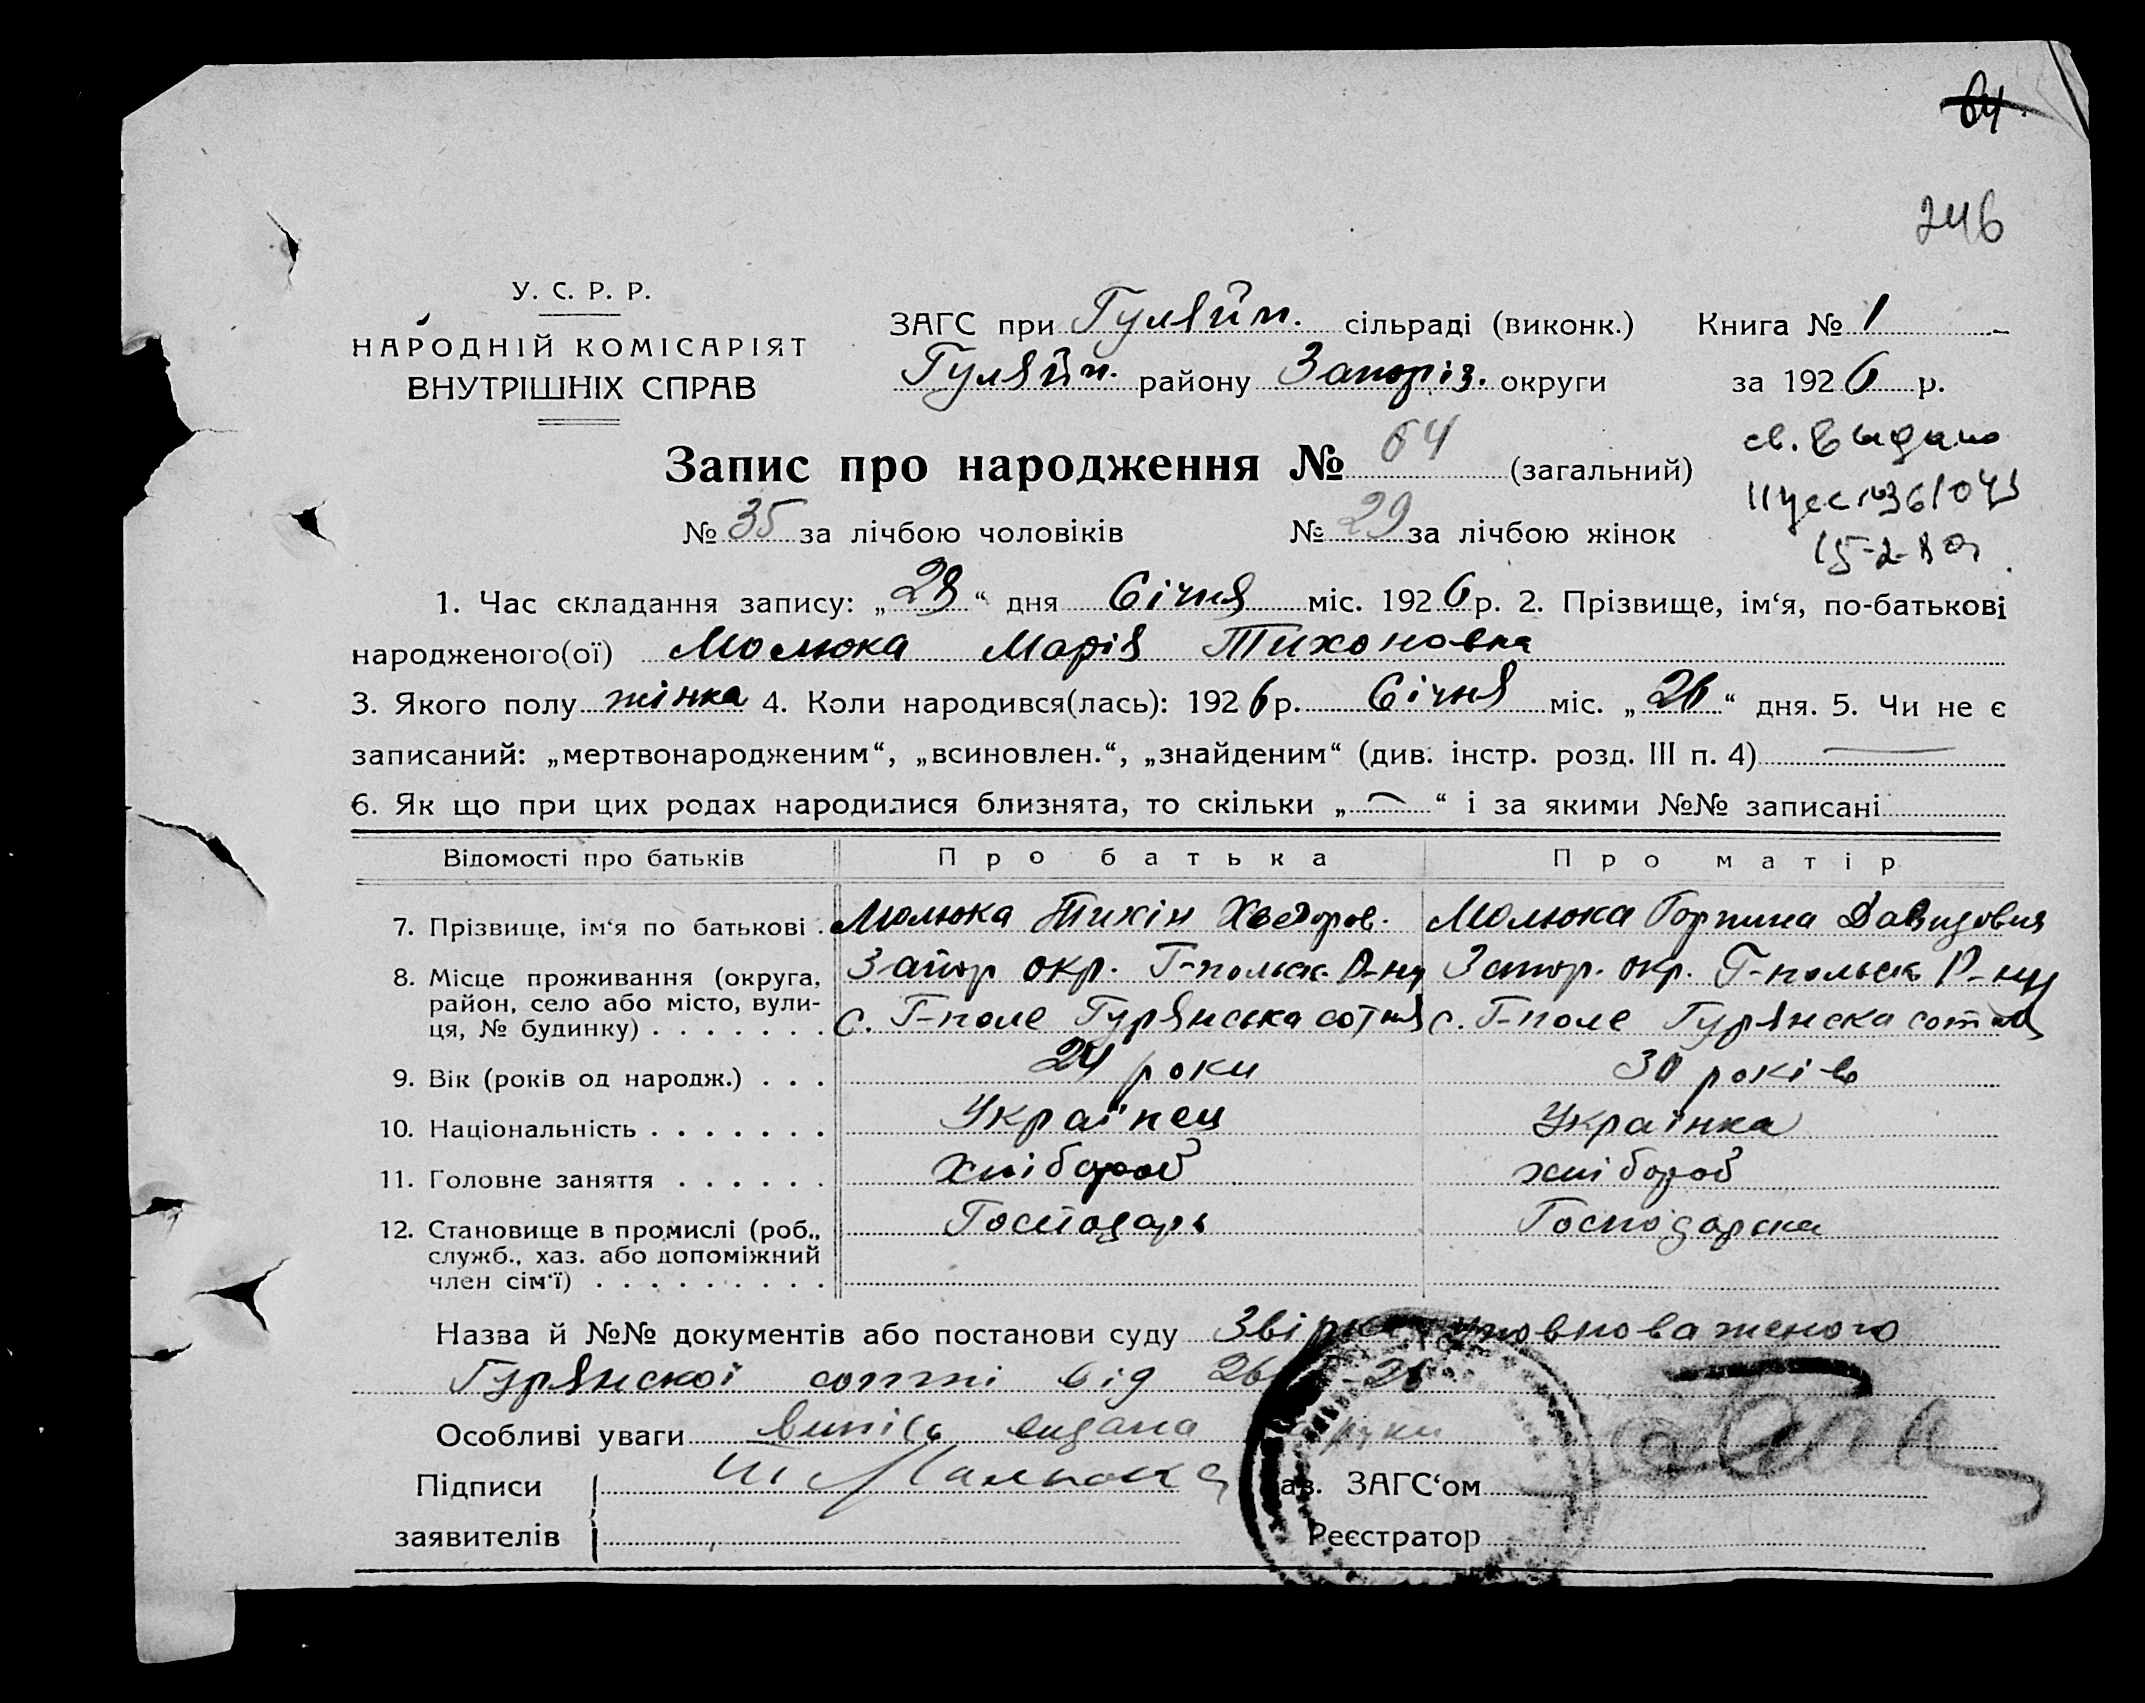 64
246
У. С. Р. Р.
НАРОДНІЙ КОМІСАРІЯТ
ВНУТРІШНІХ СПРАВ
ЗАГС при Гуляйп. сільраді (виконк.) Книга № 1
Гуляйп. району Запоріз. округи за 1926 р.
Запис про народження № 64 (загальний)
св. выдано
№ 35 за лічбою чоловіків № 29 за лічбою жінок
1. Час складання запису: „28“ дня Січня міс. 1926 р. 2. Прізвище, ім‘я, по-батькові
народженого(ої) Молюка Марія Тихоновна
3. Якого полу жінка 4. Коли народився(лась): 1926 р. Січня міс. „26“ дня. 5. Чи не є
записаний: „мертвонародженим“, „всиновлен.“, „знайденим“ (див. інстр. розд. III п. 4)
6. Як що при цих родах народилися близнята, то скільки „—“ і за якими №№ записані
Відомості про батьків Про батька Про матір
7. Прізвище, ім‘я по батькові . Молюка Тихін Хведоров. Молюка Горпина Давидовня
8. Місце проживання (округа, Запор окр. Г-польск. Р-ну Запор. окр. Г-польск Р-ну
район, село або місто, вули-
ця, № будинку) . . . . . . . с. Г-поле Гурянська сотня с. Г-поле Гурянска сотня
9. Вік (років од народж.) . . . 24 роки 30 років
10. Національність . . . . . . . Українец Українка
11. Головне заняття . . . . . . хлібороб хлібороб
12. Становище в промислі (роб., Господарь Господарка
служб., хаз. або допоміжний
член сім‘ї) . . . . . . . . . .
Назва й №№ документів або постанови суду Звірка Уповноваженого
Гурянскої сотні від 26
Особливі уваги випісь видана руки
Підписи Зав. ЗАГС‘ом
заявителів Реєстратор